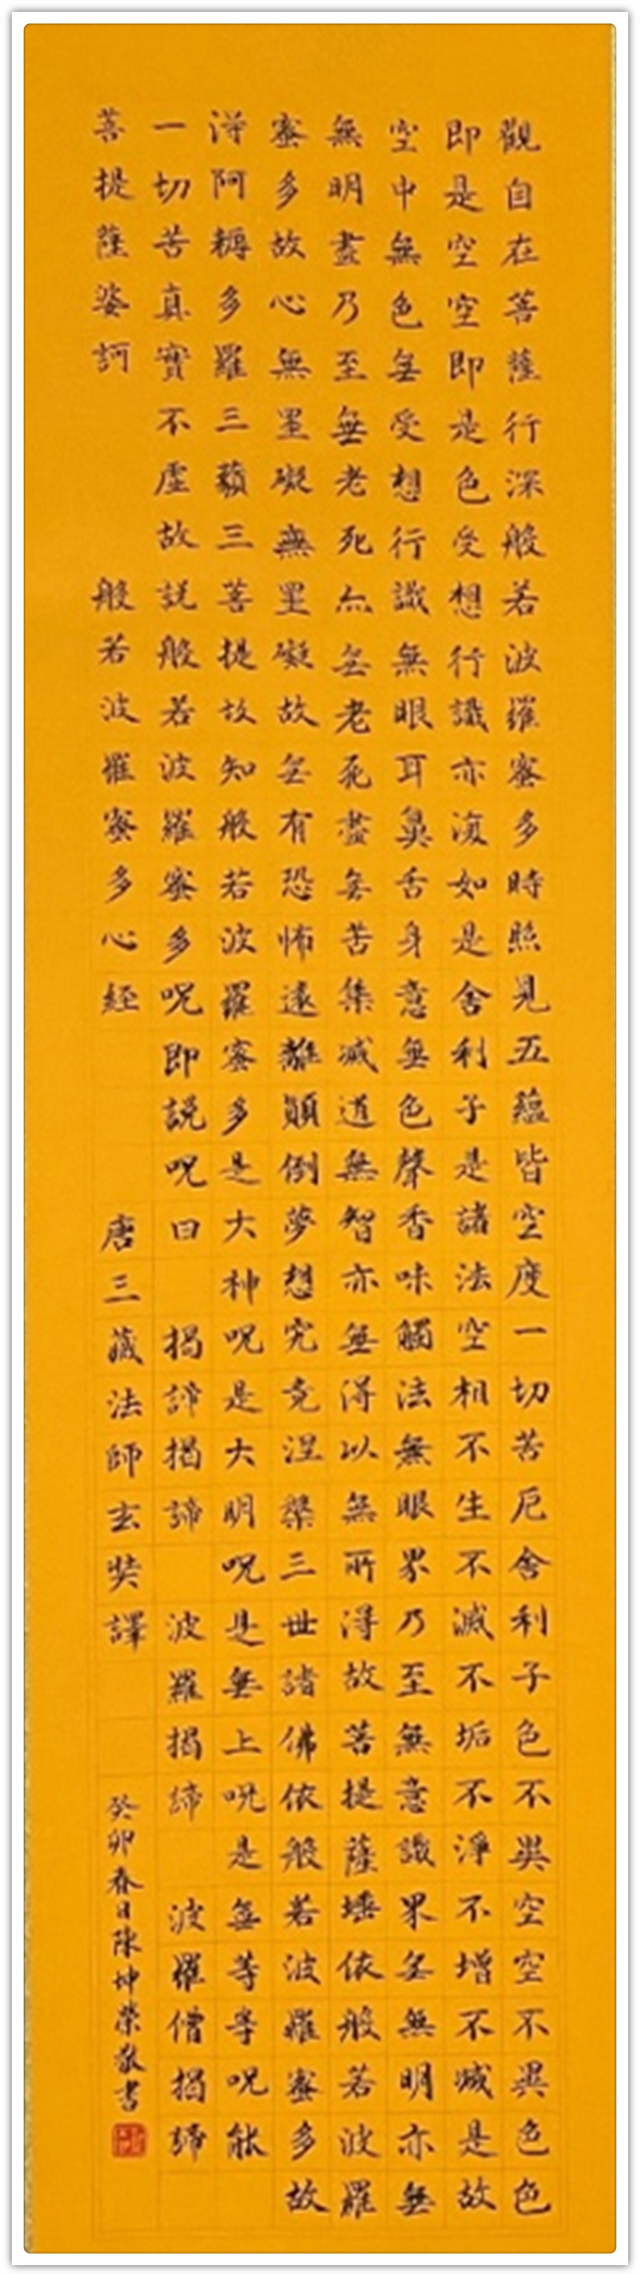 觀自在菩薩行深般若波羅蜜多時照見五蘊皆空度一切苦厄舍利子色不異空空不異色色
即是空空即是色受想行識亦復如是舍利子是諸法空相不生不滅不垢不淨不增不減是故
空中無色無受想行識無眼耳鼻舌身意無色聲香味觸法無眼界乃至無意識界無無明亦無
無明盡乃至無老死亦無老死盡無苦集滅道無智亦無得以無所得故菩提薩埵依般若波羅
蜜多故心無罣礙無罣礙故無有恐怖遠離顛倒夢想究竟涅槃三世諸佛依般若波羅蜜多故
得阿耨多羅三藐三菩提故知般若波羅蜜多是大神呪是大明呪是無上呪是無等等呪能
一切苦真實不虛故說般若波羅蜜多呪即說呪曰 揭諦揭諦 波羅揭諦 波羅僧揭諦
菩提薩婆訶 般若波羅蜜多心經 唐三藏法師玄奘譯 癸卯春日陳坤榮敬書